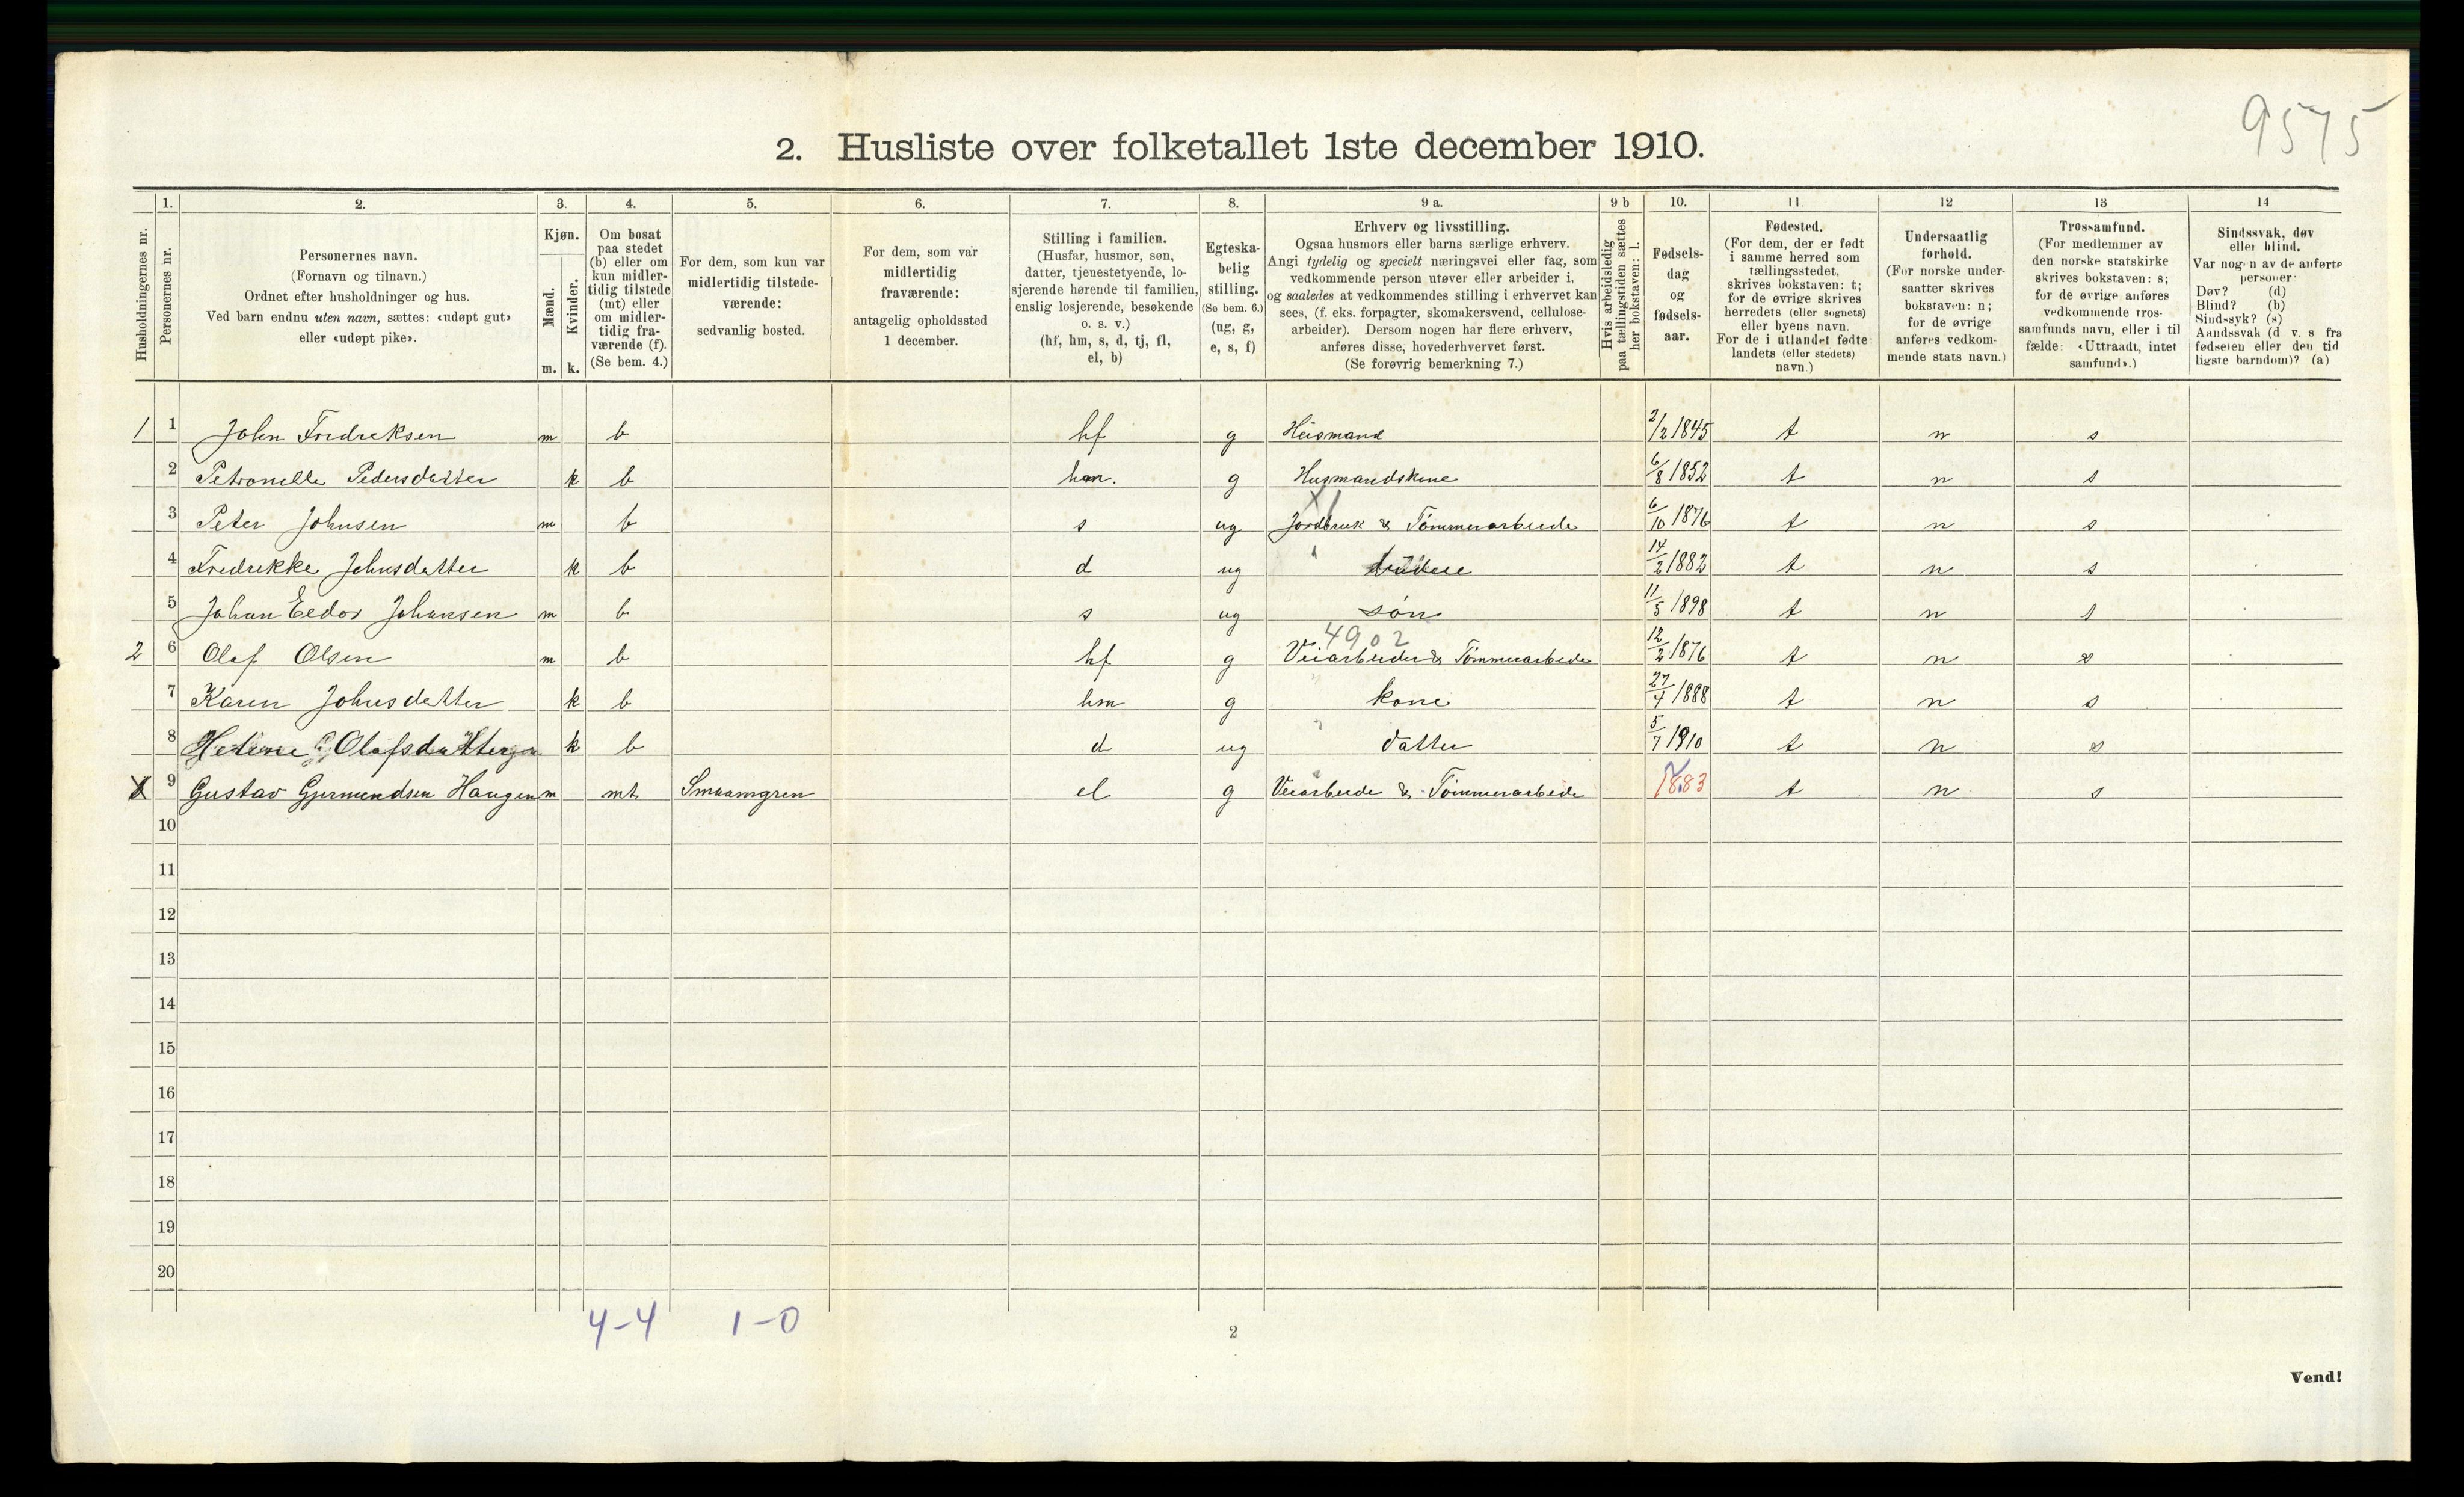 9575
2. Husliste over folketallet 1ste december 1910.
Husholdningernes nr.
1.
Personernes nr.
2.
Personernes navn.
(Fornavn og tilnavn.)
Ordnet efter husholdninger og hus.
Ved barn endnu uten navn, sættes: «udøpt gut»
eller «udøpt pike».
3.
Kjøn.
Mænd.
Kvinder.
m. k.
4.
Om bosat
paa stedet
(b) eller om
kun midler-
tidig tilstede
(mt) eller
om midler-
tidig fra-
værende (f).
(Se bem. 4.)
5.
For dem, som kun var
midlertidig tilstede-
værende:
sedvanlig bosted.
6.
For dem, som var
midlertidig
fraværende:
antagelig opholdssted
1 december.
7.
Stilling i familien.
(Husfar, husmor, søn,
datter, tjenestetyende, lo-
sjerende hørende til familien,
enslig losjerende, besøkende
o. s. v.)
(hf, hm, s, d, tj, fl,
el, b)
8.
Egteska-
belig
stilling.
(Se bem. 6.)
(ug, g,
e, s, f)
9 a.
Erhverv og livsstilling.
Ogsaa husmors eller barns særlige erhverv.
Angi tydelig og specielt næringsvei eller fag, som
vedkommende person utøver eller arbeider i,
og saaledes at vedkommendes stilling i erhvervet kan
sees, (f. eks. forpagter, skomakersvend, cellulose-
arbeider). Dersom nogen har flere erhverv,
anføres disse, hovederhvervet først.
(Se forøvrig bemerkning 7.)
9 b
Hvis arbeidsledig
paa tællingstiden sættes
her bokstaven: l.
10.
Fødsels-
dag
og
fødsels-
aar.
11.
Fødested.
(For dem, der er født
i samme herred som
tællingsstedet,
skrives bokstaven: t;
for de øvrige skrives
herredets (eller sognets)
eller byens navn.
For de i utlandet fødte
landets (eller stedets)
navn.)
12
Undersaatlig
forhold.
(For norske under-
saatter skrives
bokstaven: n;
for de øvrige
anføres vedkom-
mende stats navn.)
13
Trossamfund.
(For medlemmer av
den norske statskirke
skrives bokstaven: s;
for de øvrige anføres
vedkommende tros-
samfunds navn, eller i til
fælde: «Uttraadt, intet
samfund».)
14
Sindssvak, døv
eller blind.
Var nogen av de anførte
personer:
Døv? (d)
Blind? (b)
Sindssyk? (s)
Aandssvak (d v. s fra
fødselen eller den tid
ligste barndom)? (a)
1 1 John Fredreksen m b hf g Heismand 2/2 1845 t n s
2 Petronelle Pedersdatter k b hm. g Husmandskone 6/8 1852 t n s
3 Peter Johnsen m b s ug Jordbruk & Tømmerarbeide 6/10 1876 t n s
4 Fredrekke Johnsdatter k b d ug 14/2 1882 t n s
5 Johan Eedor Johansen m b s ug søn 11/5 1898 t n s
4902
2 6 Olaf Olsen m b hf g Veiarbeider & Tømmerarbeide 12/2 1876 t n s
7 Karen Johnsdatter k b hm g kone 27/4 1888 t n s
8 Olafsdatter k b d ug datter 5/7 1910 t n s
9 Gustav Gjermundsen Haugen m mt Smaamgren el g Veiarbeide & Tømmerarbeide 1883 t n s
10
11
12
13
14
15
16
17
18
19
20
4-4 1-0
2
Vend!